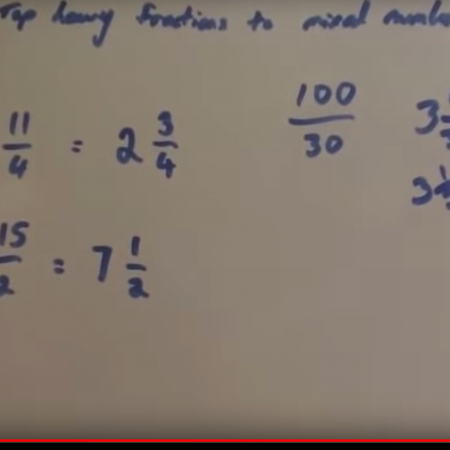 Top heavy fractions to mixed numbe
11/4 = 2 3/4
100/30
3 1
3 1
15/2 = 7 1/2